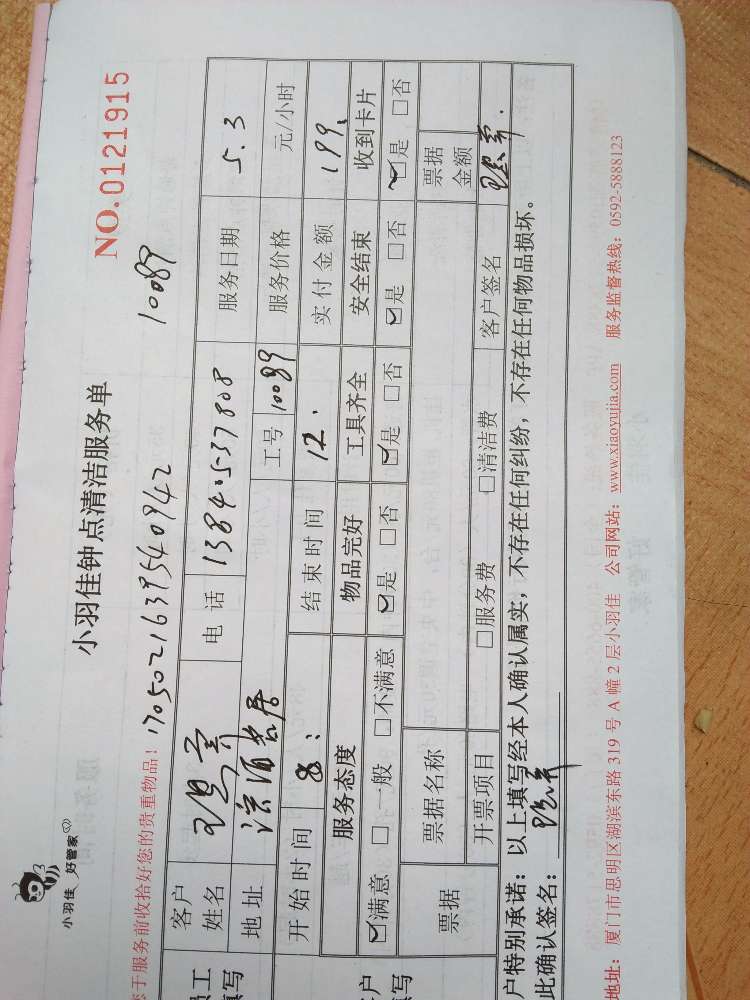 小羽佳 好管家
小羽佳钟点清洁服务单
NO.0121915
您于服务前收拾好您的贵重物品！1705021639540942 10089
员工填写
客户姓名 电话 服务日期 5.3
地址 工号 10089 服务价格 元/小时
开始时间 8: 结束时间 12. 实付金额 199.
客户填写
服务态度 物品完好 工具齐全 安全结束 收到卡片
☑满意 □一般 □不满意 ☑是 □否 ☑是 □否 ☑是 □否 ☑是 □否
票据 票据名称 票据金额
开票项目 □服务费 □清洁费 客户签名
户特别承诺：以上填写经本人确认属实，不存在任何纠纷，不存在任何物品损坏。
此确认签名：
地址：厦门市思明区湖滨东路 319 号 A 幢 2 层小羽佳 公司网站：www.xiaoyujia.com 服务监督热线：0592-5888123